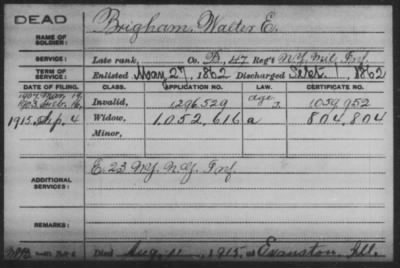 DEAD
NAME OF SOLDIER: Brigham, Walter E.
SERVICE: Late rank, Co. B, 47 Reg't N.Y. Mil. Inf.
TERM OF SERVICE: Enlisted May 27, 1862 Discharged Sept. 1, 1862
DATE OF FILING. CLASS. APPLICATION NO. LAW. CERTIFICATE NO.
1907 Mar. 19 Invalid, 1296529 age 1059952
1915 Sep. 4 Widow, 1,052,616 a 804,804
Minor,
ADDITIONAL SERVICES: E. 23 N.Y. N.G. Inf
REMARKS:
Died Aug. 11, 1915, at Evanston, Ill.